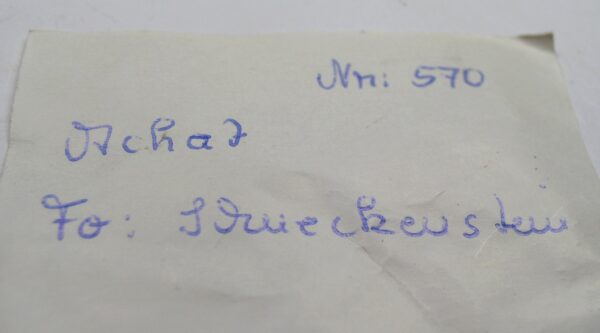 Nr: 570
Achat
Fo: Schneckenstein